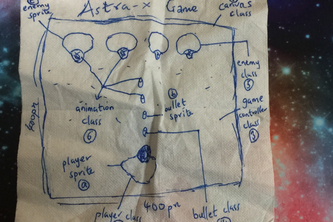 Astra-x Game
canvas
class
enemy
sprite
enemy
class
⑤
animation
class
⑥
bullet
sprite
game
controller
class
③
player
sprite
400px
player class
bullet class